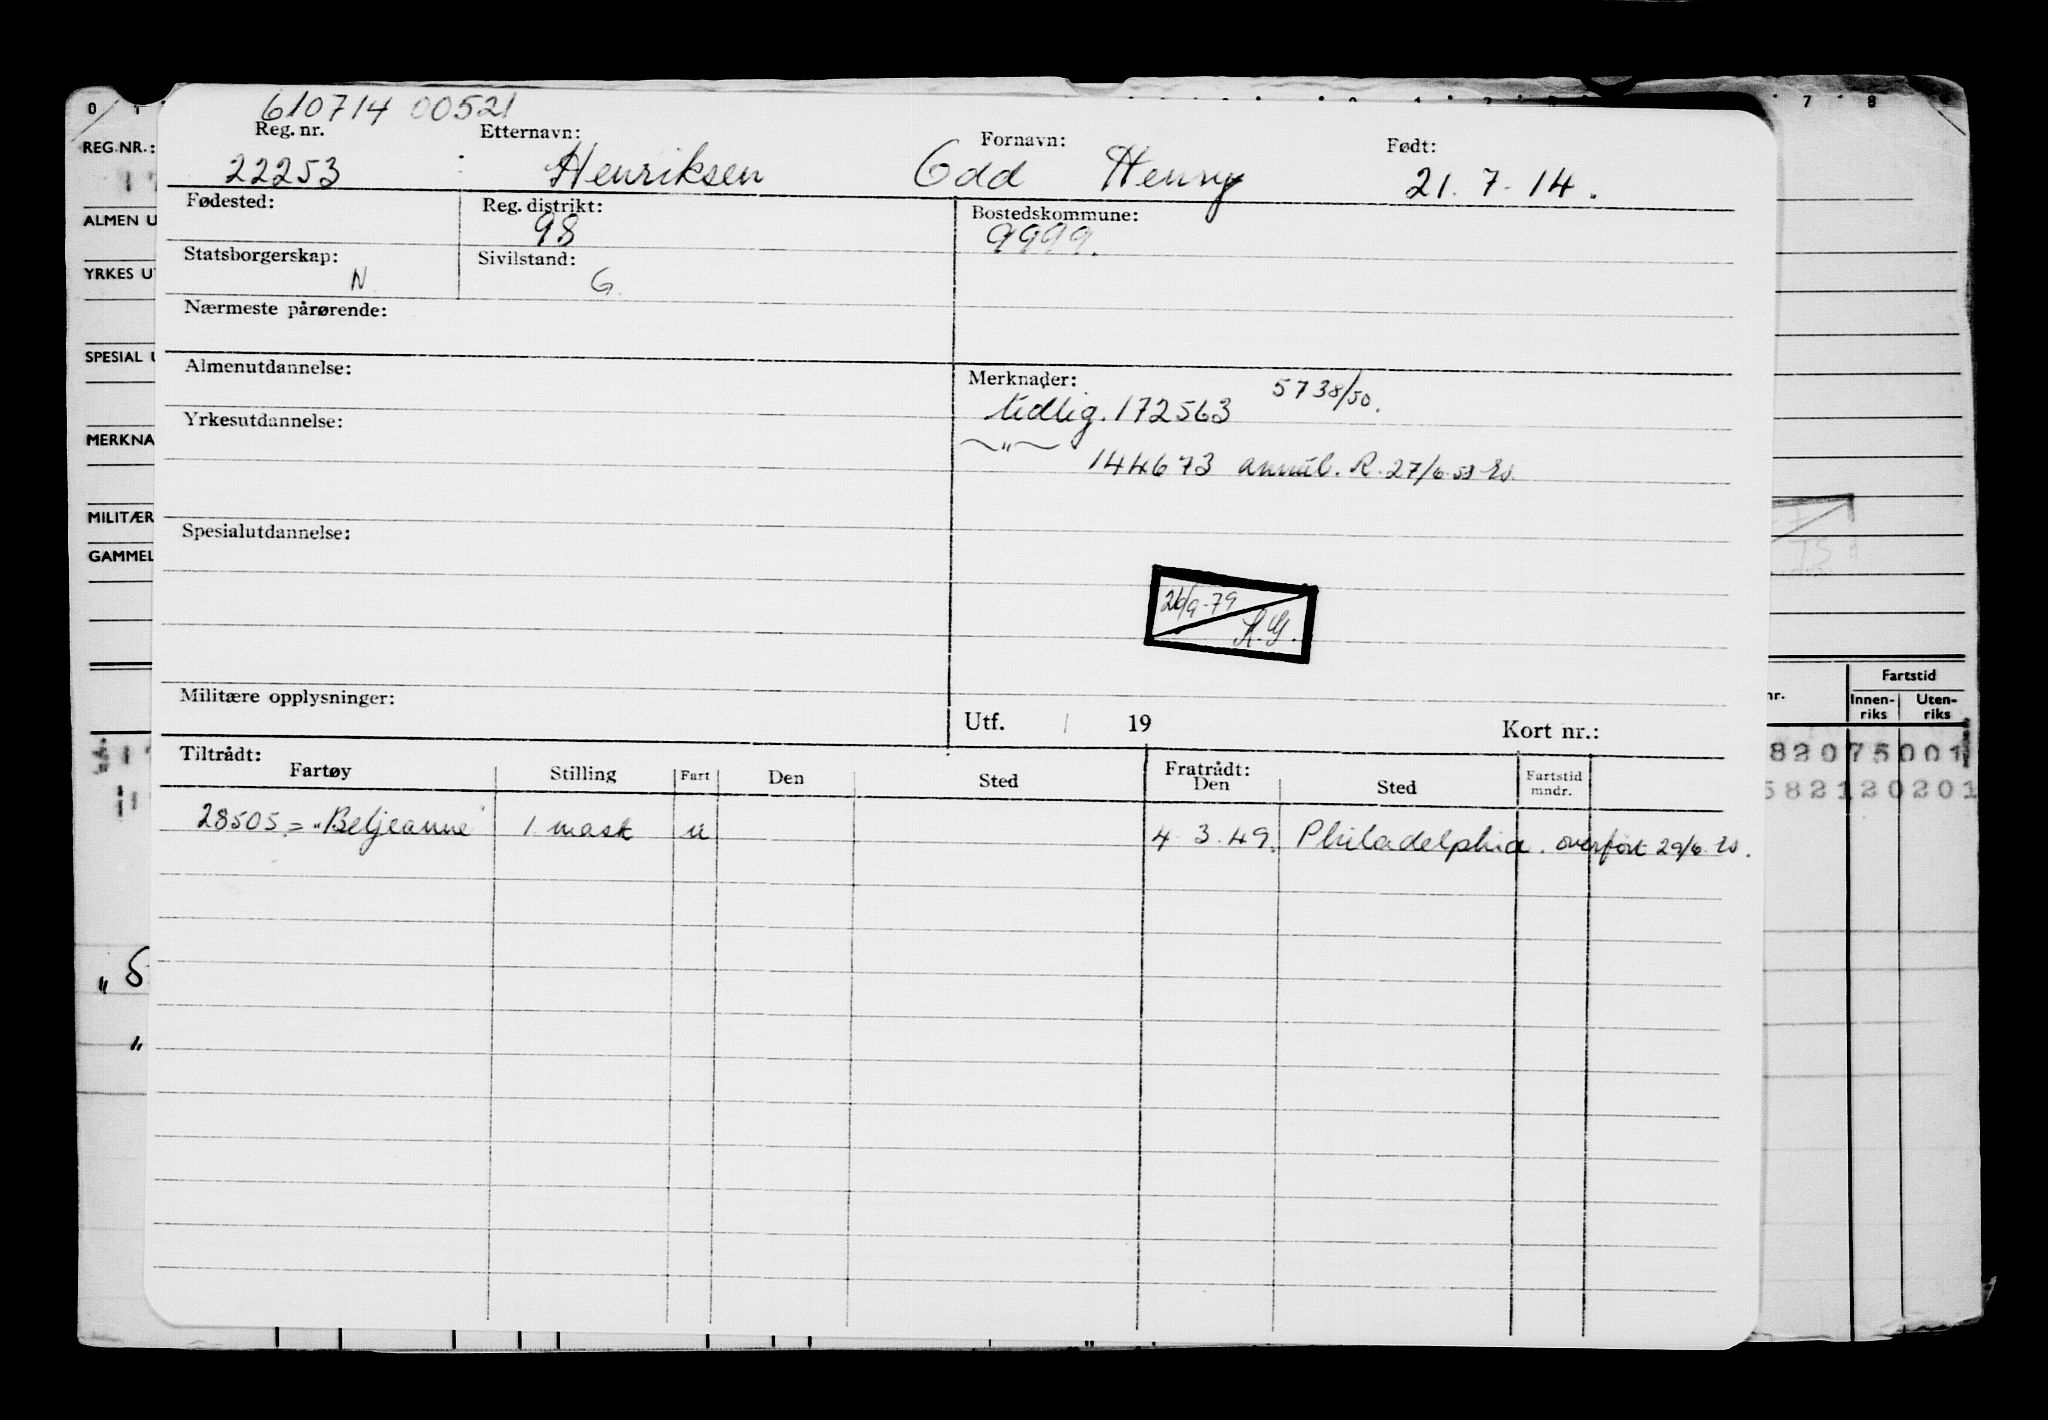 610714 00521
Reg. nr. Etternavn: Fornavn: Født:
22253 Henriksen Odd Henry 21. 7. 14.
Fødested: Reg. distrikt: 98 Bostedskommune: 9999.
Statsborgerskap: N Sivilstand: G.
Nærmeste pårørende:
Almenutdannelse: Merknader: 5738/50.
tidlig. 172563
Yrkesutdannelse:
〃 144673 annul. R. 27/6.53
Spesialutdannelse:
26/9-79
Militære opplysninger:
Utf. / 19 Kort nr.:
Tiltrådt: Fratrådt:
Fartøy Stilling Fart Den Sted Den Sted Fartstid mndr.
28505 = "Beljeanne" 1 mask u 4. 3. 49. Philadelphia. overført 29/6
0 1 7 8
REG.NR.:
ALMEN U
YRKES UT
SPESIAL U
MERKNA
MILITÆR
GAMMEL
nr. Fartstid
Innen-riks Uten-riks
82075001
582120201